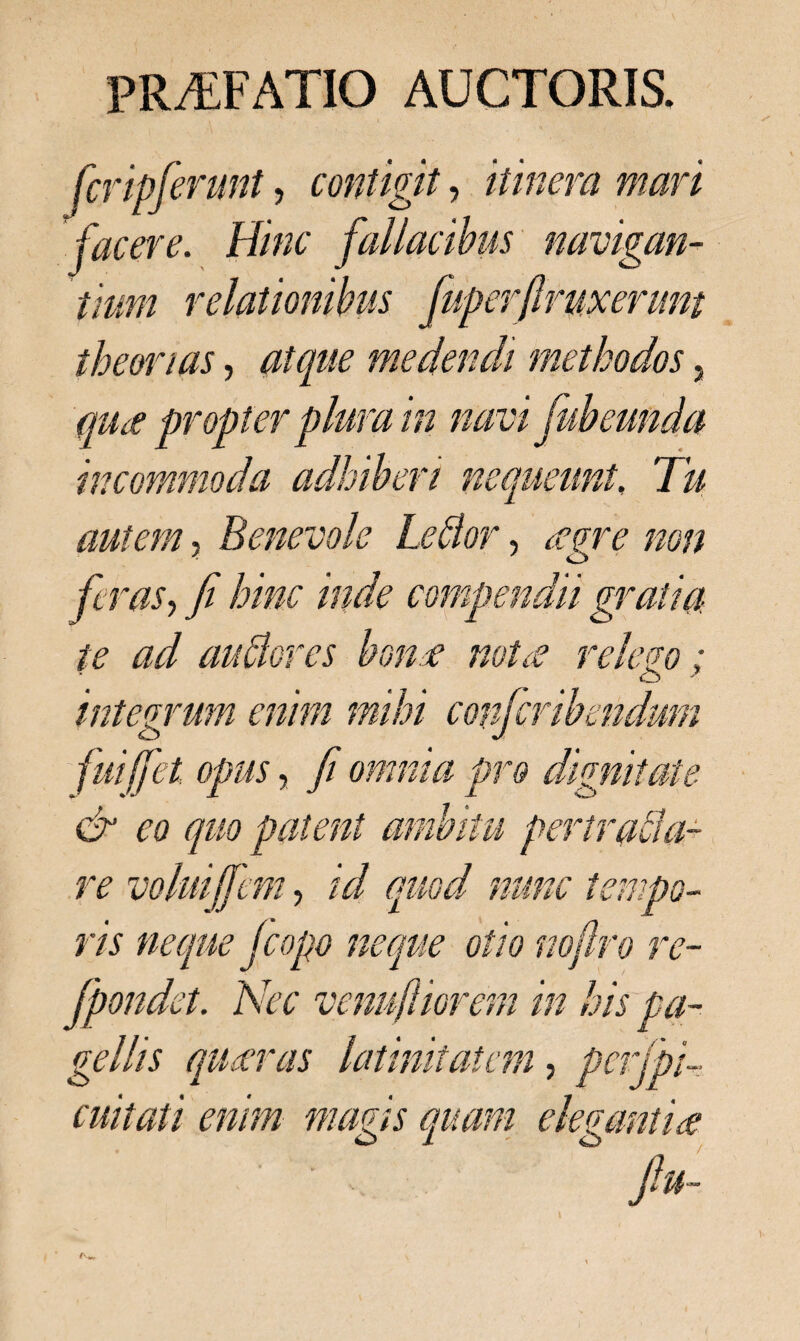 PRÆFATIO AUCTORIS.
ſcripſerunt, contigit, itinera mari
facere. Hinc fallacibus navigan-
tium relationibus ſuperſtruxerunt
theorias, atque medendi methodos,
quæ propter plura in navi ſubeunda
incommoda adhiberi nequeunt. Tu
autem, Benevole Lector, ægre non
feras, ſi hinc inde compendii gratia
te ad auctores bonæ notæ relego;
integrum enim mihi conſcribendum
fuiſſet opus, ſi omnia pro dignitate
& eo quo patent ambitu pertracta-
re voluiſſem, id quod nunc tempo-
ris neque ſcopo neque otio noſtro re-
ſpondet. Nec venuſtiorem in his pa-
gellis quæras latinitatem, perſpi-
cuitati enim magis quam elegantiæ
ſtu-